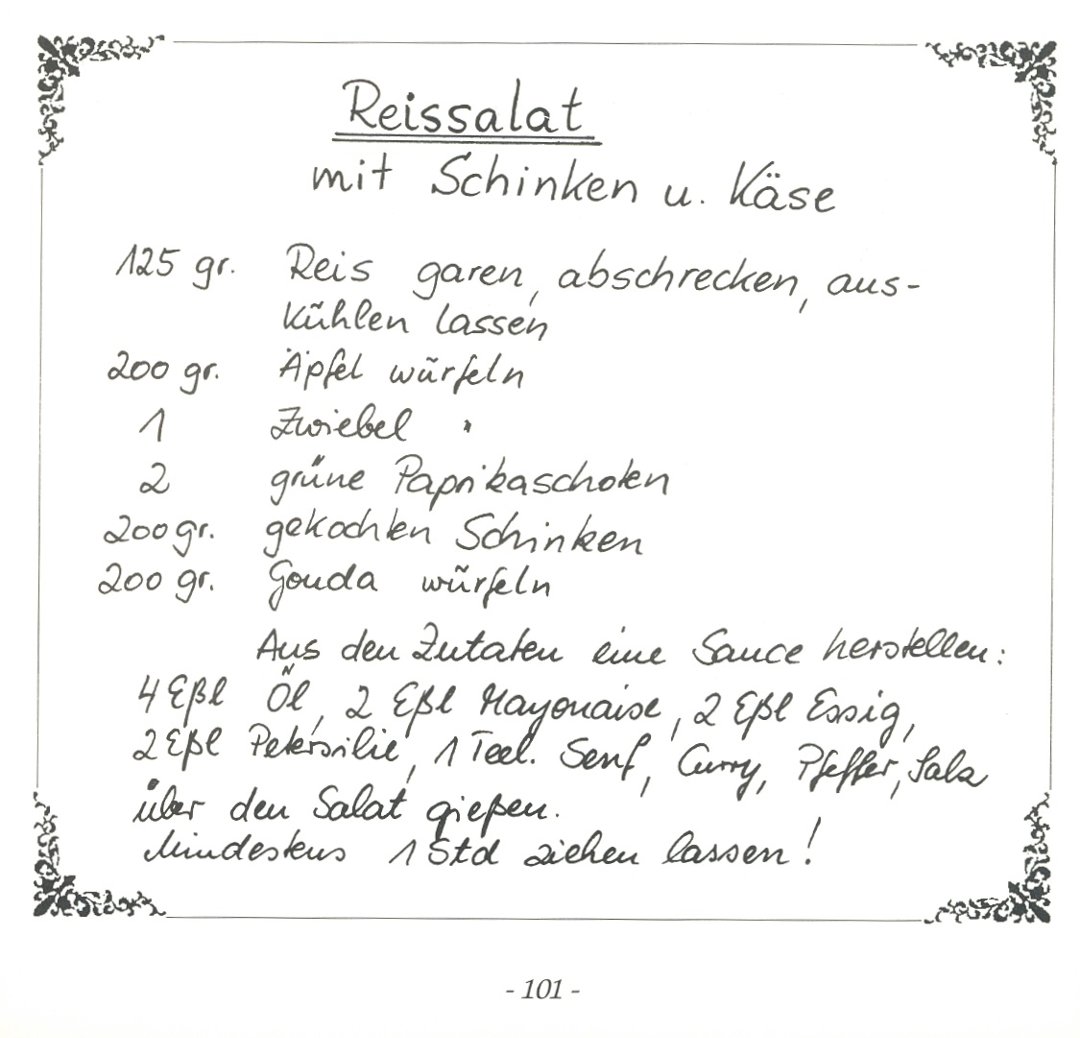 Reissalat
mit Schinken u. Käse
125 gr. Reis garen, abschrecken, aus-
kühlen lassen
200 gr. Äpfel würfeln
1 Zwiebel "
2 grüne Paprikaschoten
200 gr. gekochten Schinken
200 gr. Gouda würfeln
Aus den Zutaten eine Sauce herstellen:
4 Eßl Öl, 2 Eßl Mayonaise, 2 Eßl Essig,
2 Eßl Petersilie, 1 Teel. Senf, Curry, Pfeffer, Salz
über den Salat gießen.
Mindestens 1 Std ziehen lassen!
- 101 -